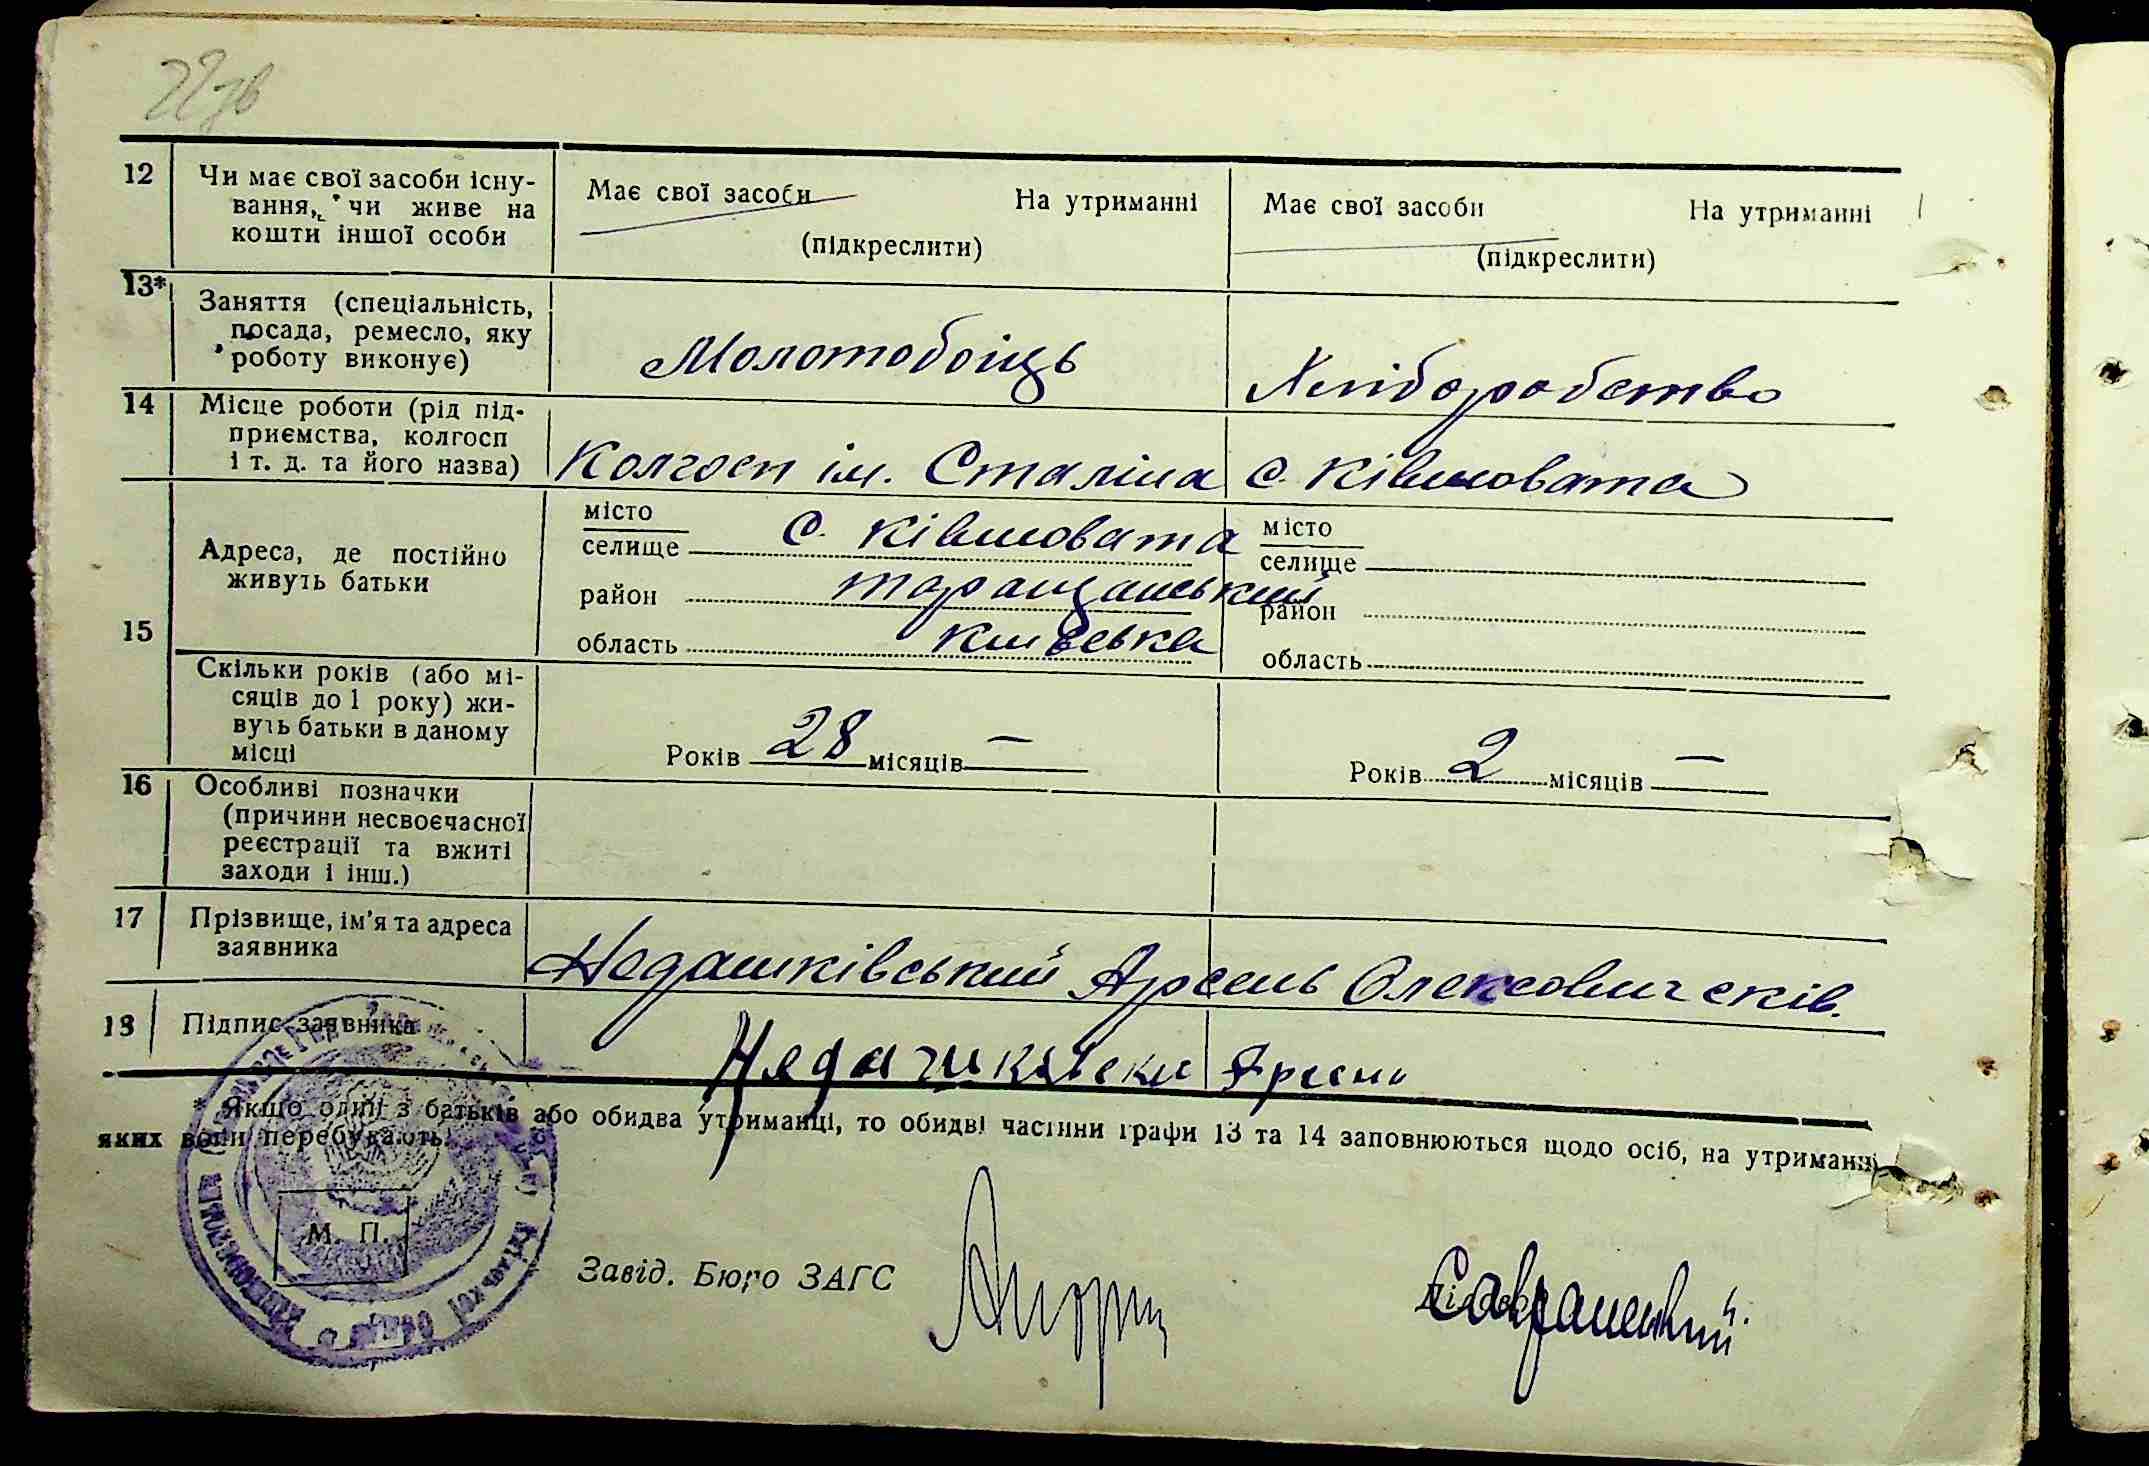 22зв
12 Чи має свої засоби існу-
вання, чи живе на
кошти іншої особи
Має свої засоби На утриманні
(підкреслити)
Має свої засоби На утриманні
(підкреслити)
13* Заняття (спеціальність,
посада, ремесло, яку
роботу виконує)
Молотобоїць
Хліборобство
14 Місце роботи (рід під-
приємства, колгосп
і т. д. та його назва)
Колгосп ім. Сталіна с. Ківшовата
15 Адреса, де постійно
живуть батьки
місто
селище с. Ківшовата
район таращанський
область київська
місто
селище
район
область
Скільки років (або мі-
сяців до 1 року) жи-
вуть батьки в даному
місці
Років 28 місяців —
Років 2 місяців —
16 Особливі позначки
(причини несвоєчасної
реєстрації та вжиті
заходи і інш.)
17 Прізвище, ім'я та адреса
заявника
Недашківський Арсень Олексович с ків.
18 Підпис заявника
* Якщо один з батьків або обидва утриманці, то обидві частини графи 13 та 14 заповнюються щодо осіб, на утриманні
яких вони перебувають.
М. П.
Завід. Бюро ЗАГС